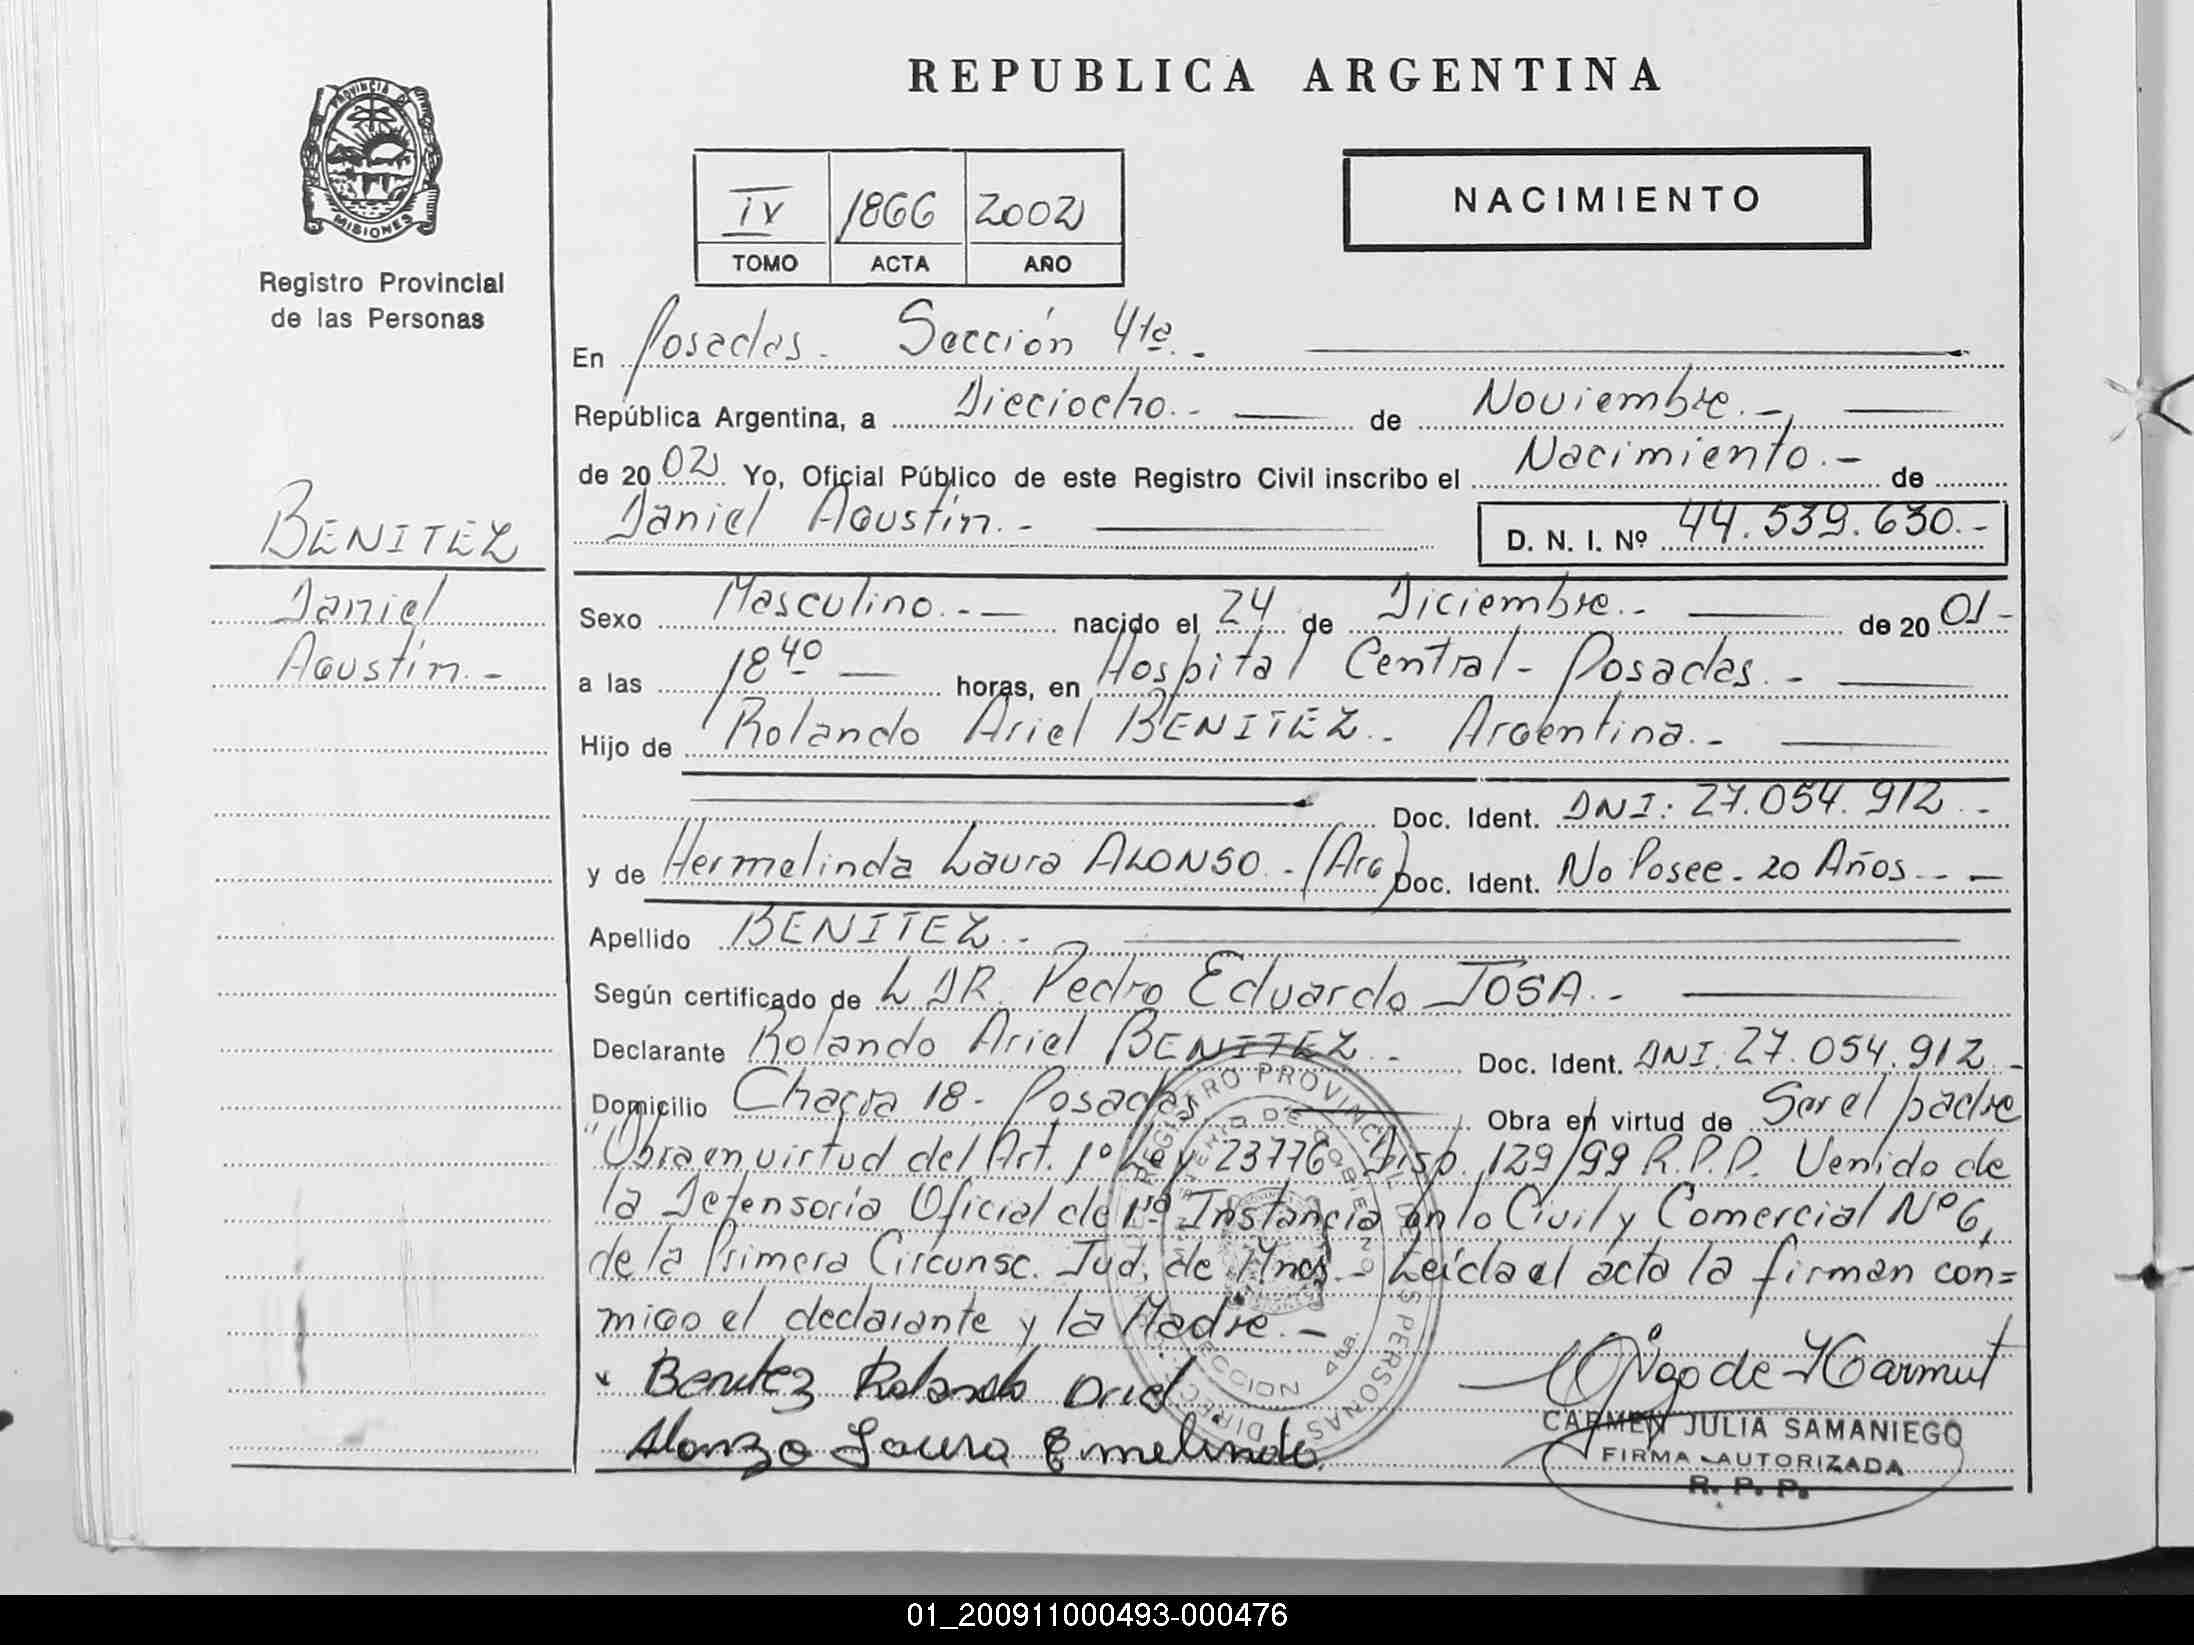 REPUBLICA ARGENTINA
PROVINCIA DE
MISIONES
Registro Provincial
de las Personas
NACIMIENTO
IV 1866 2002
TOMO ACTA AÑO
En Posadas. Sección 4ta.-
República Argentina, a Dieciocho.- de Noviembre.-
de 2002 Yo, Oficial Público de este Registro Civil inscribo el Nacimiento.- de
Daniel Agustín.- D. N. I. Nº 44.539.630.-
BENITEZ
Daniel
Agustín.-
Sexo Masculino.- nacido el 24 de Diciembre.- de 2001-
a las 18 40 horas, en Hospital Central- Posadas.-
Hijo de Rolando Ariel BENITEZ.- Argentina.-
Doc. Ident. DNI: 27.054.912.-
y de Hermelinda Laura ALONSO.-(Arg) Doc. Ident. No Posee- 20 Años.-
Apellido BENITEZ.-
Según certificado de LDR. Pedro Eduardo JOSA.-
Declarante Rolando Ariel BENITEZ.- Doc. Ident. DNI. 27.054.912.-
Domicilio Chacra 18- Posadas Obra en virtud de Ser el padre
"Obra en virtud del Art. 1º Ley 23776 Disp. 129/99 R.P.P. Venido de
la Defensoría Oficial de 1ra Instancia en lo Civil y Comercial Nº 6,
de la Primera Circunsc. Jud. de Mnes.- Leída el acta la firman con=
migo el declarante y la Madre.-
Benitez Rolando Ariel
Alonzo Laura Ermelinda.
REGISTRO PROVINCIAL DE LAS PERSONAS
MINISTERIO DE GOBIERNO
SECCION 4ta.
CARMEN JULIA SAMANIEGO
FIRMA AUTORIZADA
R. P. P.
01_200911000493-000476